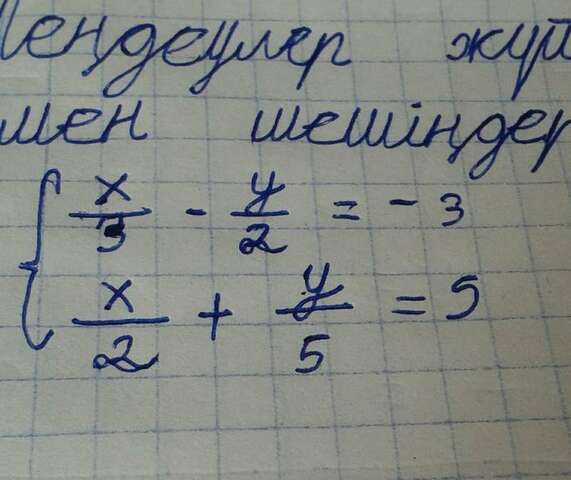 Теңдеулер жүй
мен шешіңдер
x/3 - y/2 = -3
x/2 + y/5 = 5